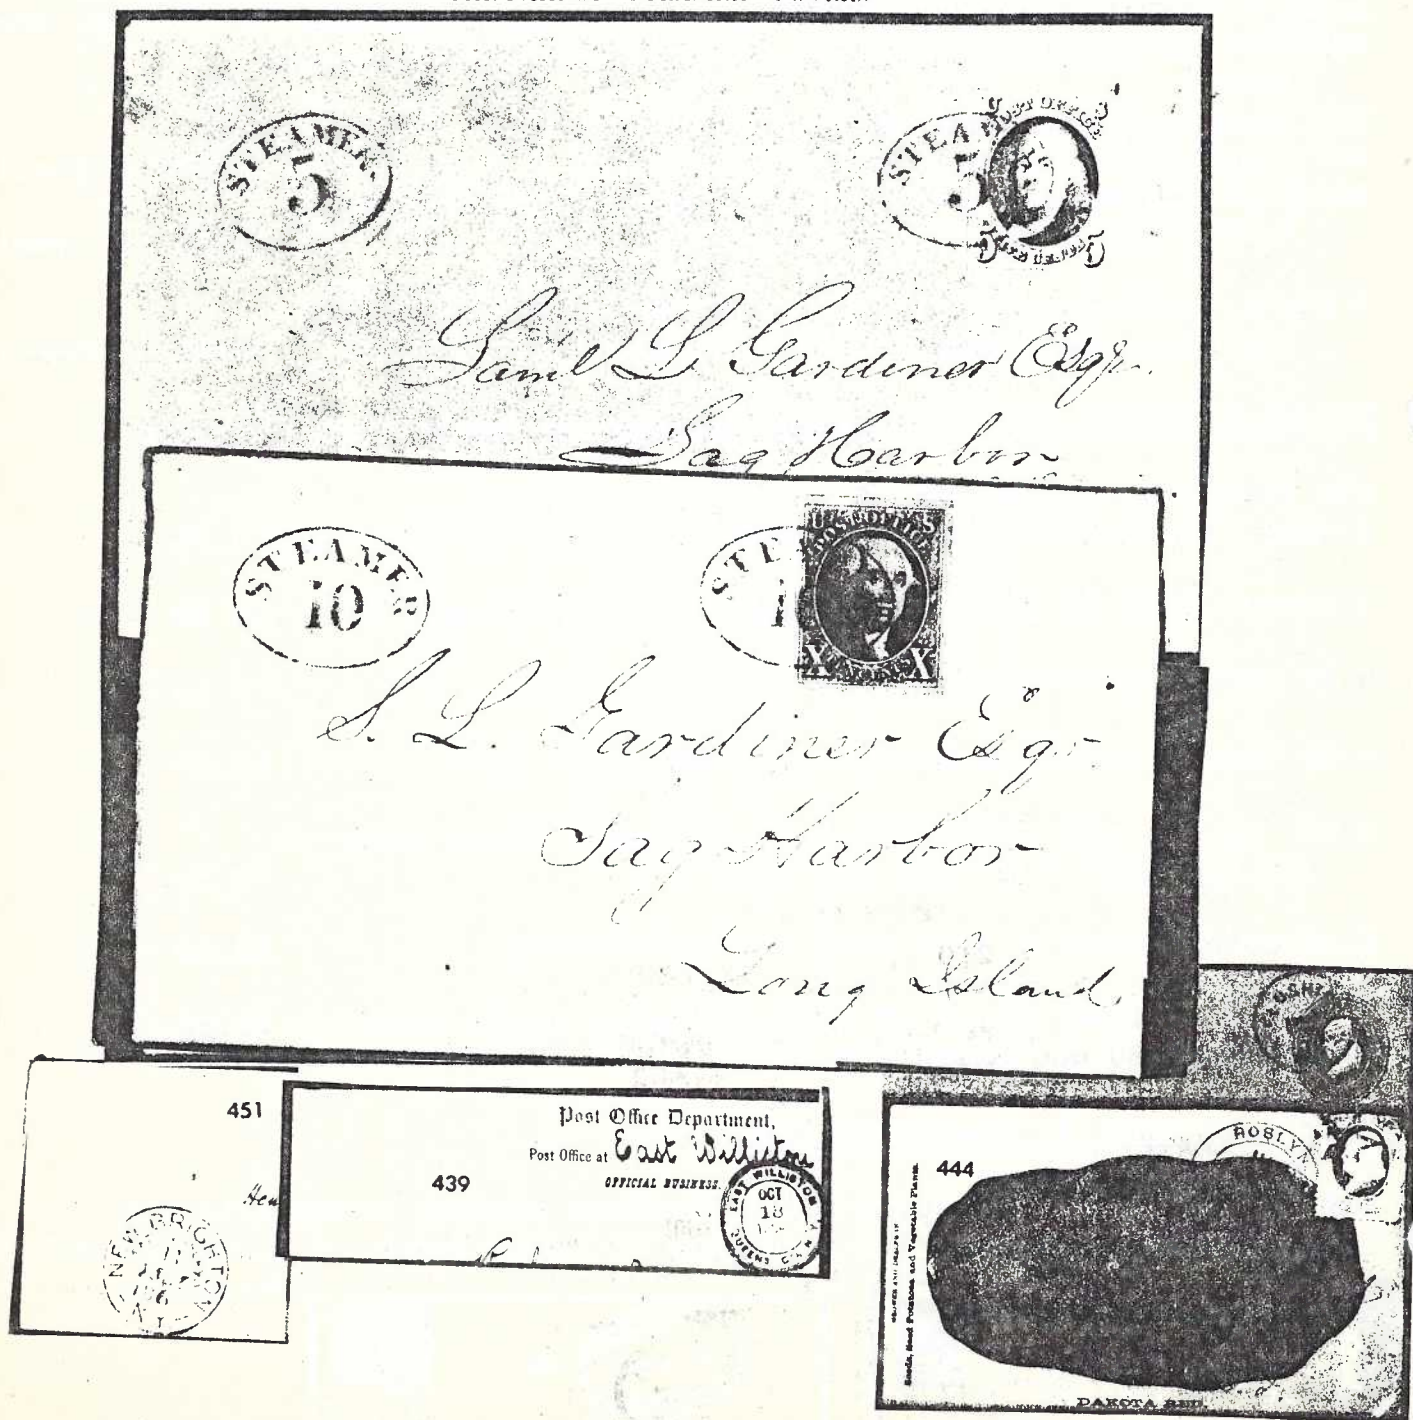 STEAMER
5
STEAM
5
POST OFFICE
5 5
Saml L Gardiner Esqr.
Sag Harbor
STEAMER
10
STE
1
U S
POST OFFICE
X X
S. L. Gardiner Esqr
Sag Harbor
Long Island.
451
Hen
NEW BRIGHTON
Post Office Department,
Post Office at East Williston
OFFICIAL BUSINESS.
439
EAST WILLISTON
OCT
18
QUEENS
444
ROSLYN
Seeds, Seed Potatoes and Vegetable Plants
DAKOTA RED